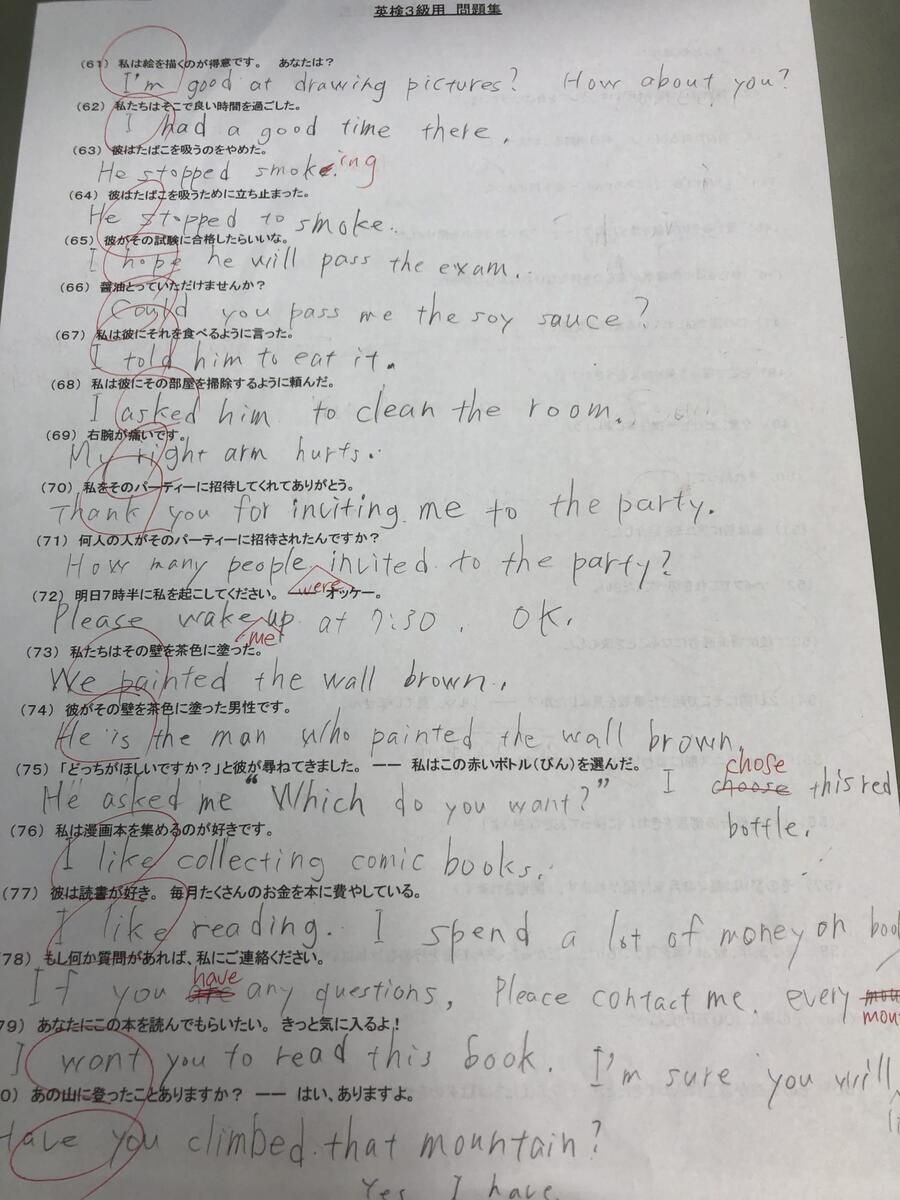 英検3級用 問題集
(61) 私は絵を描くのが得意です。 あなたは?
I'm good at drawing pictures? How about you?
(62) 私たちはそこで良い時間を過ごした。
I had a good time there.
(63) 彼はたばこを吸うのをやめた。
He stopped smoking
(64) 彼はたばこを吸うために立ち止まった。
He stopped to smoke.
(65) 彼がその試験に合格したらいいな。
I hope he will pass the exam.
(66) 醤油とっていただけませんか?
Could you pass me the soy sauce?
(67) 私は彼にそれを食べるように言った。
I told him to eat it.
(68) 私は彼にその部屋を掃除するように頼んだ。
I asked him to clean the room.
(69) 右腕が痛いです。
My right arm hurts.
(70) 私をそのパーティーに招待してくれてありがとう。
Thank you for inviting me to the party.
(71) 何人の人がそのパーティーに招待されたんですか?
How many people invited to the party?
were
(72) 明日7時半に私を起こしてください。 ―― オッケー。
Please wake up at 7:30. OK.
me
(73) 私たちはその壁を茶色に塗った。
We painted the wall brown.
(74) 彼がその壁を茶色に塗った男性です。
He is the man who painted the wall brown.
(75) 「どっちがほしいですか?」と彼が尋ねてきました。 ―― 私はこの赤いボトル(びん)を選んだ。
chose
He asked me "Which do you want?" I choose this red
bottle.
(76) 私は漫画本を集めるのが好きです。
I like collecting comic books.
(77) 彼は読書が好き。 毎月たくさんのお金を本に費やしている。
I like reading. I spend a lot of money on
78) もし何か質問があれば、私にご連絡ください。
have
If you are any questions, Pleace contact me. every
79) あなたにこの本を読んでもらいたい。 きっと気に入るよ!
I wont you to read this book. I'm sure you will
0) あの山に登ったことありますか? ―― はい、ありますよ。
Have you climbed that mountain?
Yes I have.